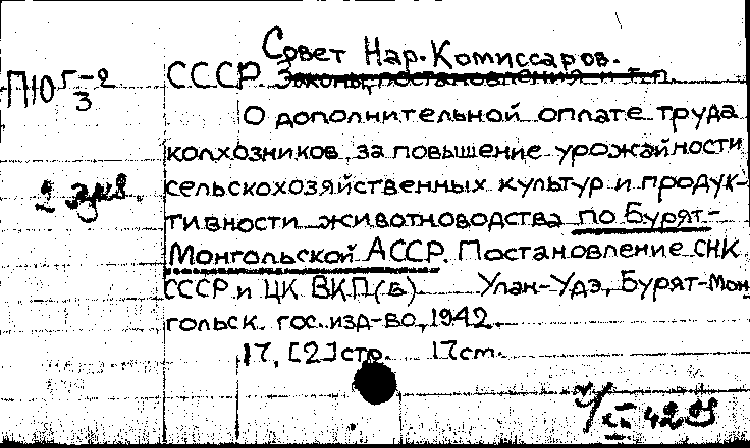 Совет Нар. Комиссаров.
П10 Г-2
3
СССР. Законы, постановления и т.п.
О дополнительной оплате труда
колхозников за повышение урожайности
сельскохозяйственных культур и продук-
тивности животноводства по Бурят-
Монгольской АССР. Постановление СНК
СССР и ЦК ВКП(б) Улан-Удэ, Бурят-Мон
гольск. гос. изд-во, 1942.
17, [2] стр. 17 см.
2 экз.